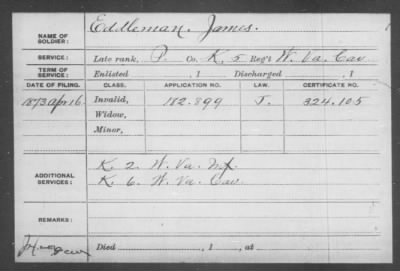 NAME OF SOLDIER: Eddleman, James.
SERVICE: Late rank, P. Co. K, 5 Reg't W. Va. Cav
TERM OF SERVICE: Enlisted , 1 Discharged , 1
DATE OF FILING. CLASS. APPLICATION NO. LAW. CERTIFICATE NO.
1873 Apr 16 Invalid, 182.899 J. 324.105
Widow,
Minor,
ADDITIONAL SERVICES: K. 2. W. Va. Inf
K. 6. W. Va. Cav
REMARKS:
Died , 1 , at